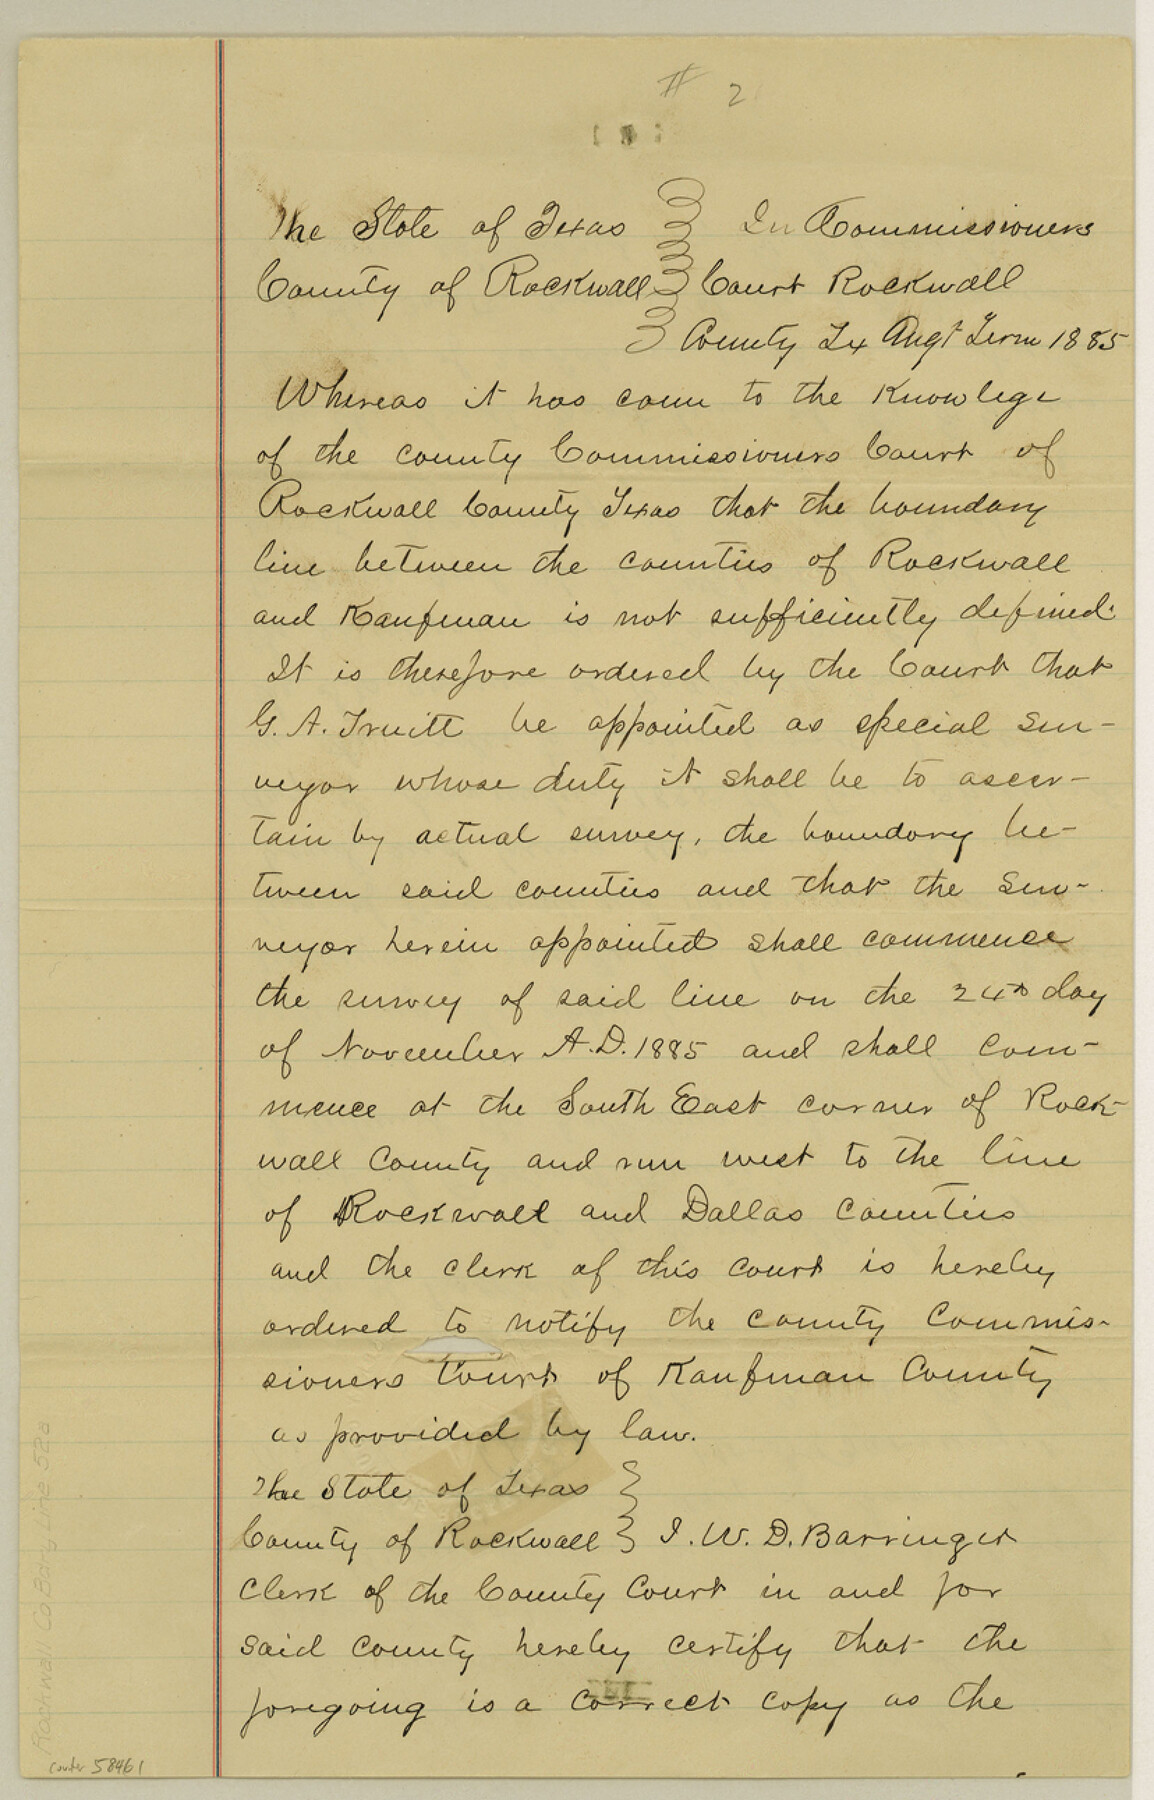 # 2
The State of Texas } In Commissioners
County of Rockwall } Court Rockwall
} County Tx Augt Term 1885
Whereas it has come to the Knowlege
of the county Commissioners Court of
Rockwall County Texas that the boundary
line between the counties of Rockwall
and Kaufman is not sufficiently defined.
It is therefore ordered by the Court that
G. A. Truitt be appointed as special sur-
veyor whose duty it shall be to ascer-
tain by actual survey, the boundary be-
tween said counties and that the Sur-
veyor herein appointed shall commence
the survey of said line on the 24th day
of November A.D. 1885 and shall com-
mence at the South East corner of Rock-
wall County and run west to the line
of Rockwall and Dallas Counties
and the clerk of this court is hereby
ordered to notify the County Commis-
sioners Court of Kaufman County
as provided by law.
The State of Texas }
County of Rockwall } I. W. D. Barringer
Clerk of the County Court in and for
said County hereby certify that the
foregoing is a correct copy as the
Rockwall Co Bdry Line 52a
counter 58461